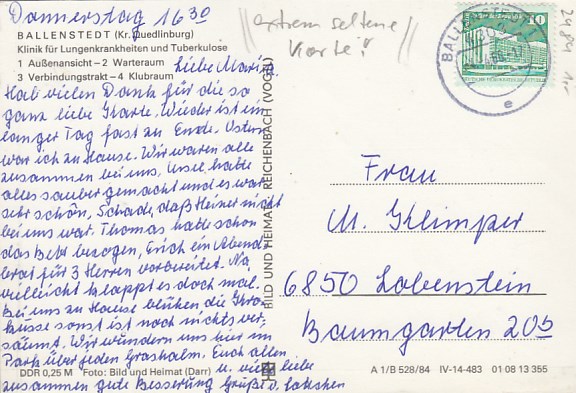 Donnerstag 16 30
BALLENSTEDT (Kr. Quedlinburg)
Klinik für Lungenkrankheiten und Tuberkulose
1 Außenansicht – 2 Warteraum
3 Verbindungstrakt – 4 Klubraum
Liebe
Hab vielen Dank für die so
ganz liebe Karte. Wieder ist ein
langer Tag fast zu Ende. Ostern
war ich zu Hause. Wir waren alle
zusammen bei uns, hatte
alles sauber gemacht und es war
sehr schön, Schade, daß Heiner nicht
bei uns war. Thomas hatte schon
das Bett bezogen, Erich ein Abend
brot für 3 Herren vorbereitet. Na
vielleicht klappt es doch mal.
Bei uns zu Hause blühen die Kro-
kusse sonst ist noch nichts ver-
säumt. Wir wundern uns hier im
Park über jeden Grashalm. Euch allen
u. viele liebe
zusammen gute Besserung Grüße v.
DDR 0,25 M Foto: Bild und Heimat (Darr)
BILD UND HEIMAT REICHENBACH (VOGTL)
extrem seltene
Karte!
BALLENSTEDT
10
e
Frau
M. Klimper
6850 Lobenstein
Baumgarten 20b
A 1/B 528/84 IV-14-483 01 08 13 355